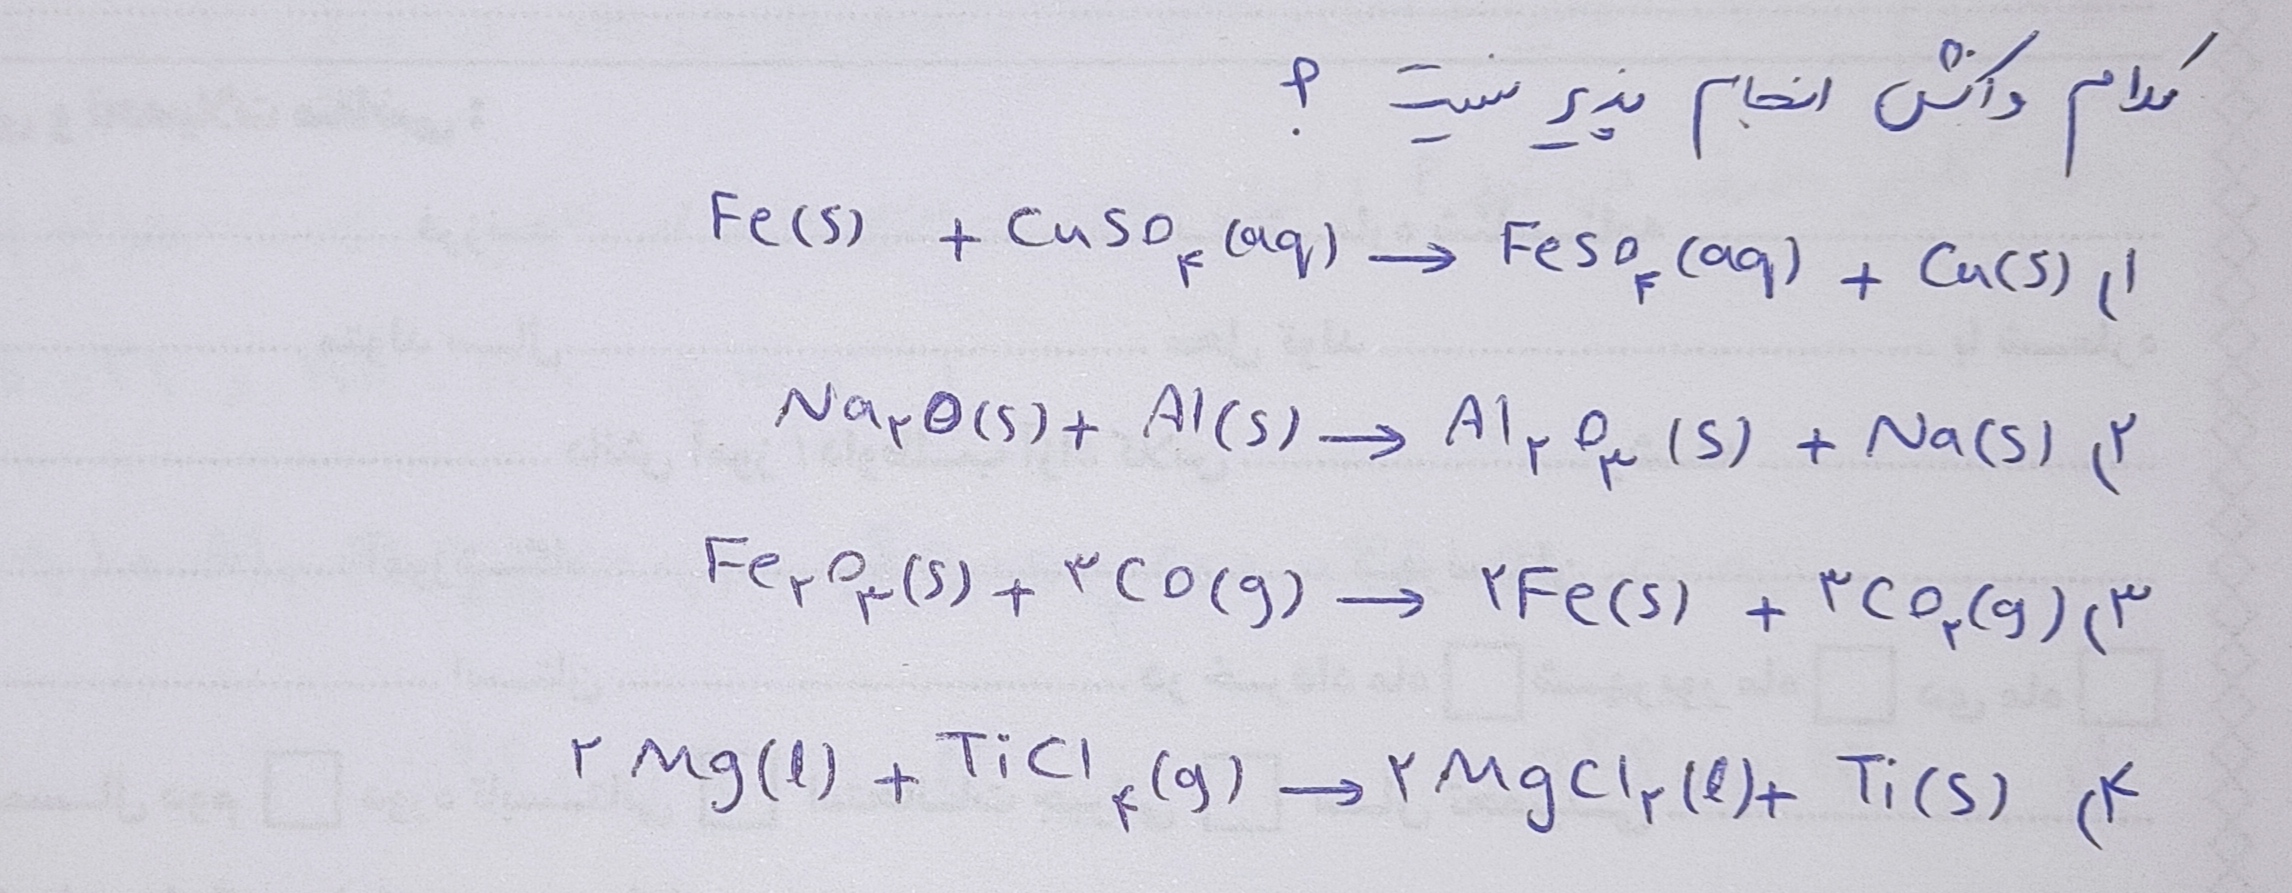 کدام واکنش انجام پذیر نیست ؟
Fe(s) + CuSO۴(aq) → FeSO۴(aq) + Cu(s) (۱
Na۲O(s) + Al(s) → Al۲O۳(s) + Na(s) (۲
Fe۲O۳(s) + ۳CO(g) → ۲Fe(s) + ۳CO۲(g) (۳
۲Mg(l) + TiCl۴(g) → ۲MgCl۲(l) + Ti(s) (۴